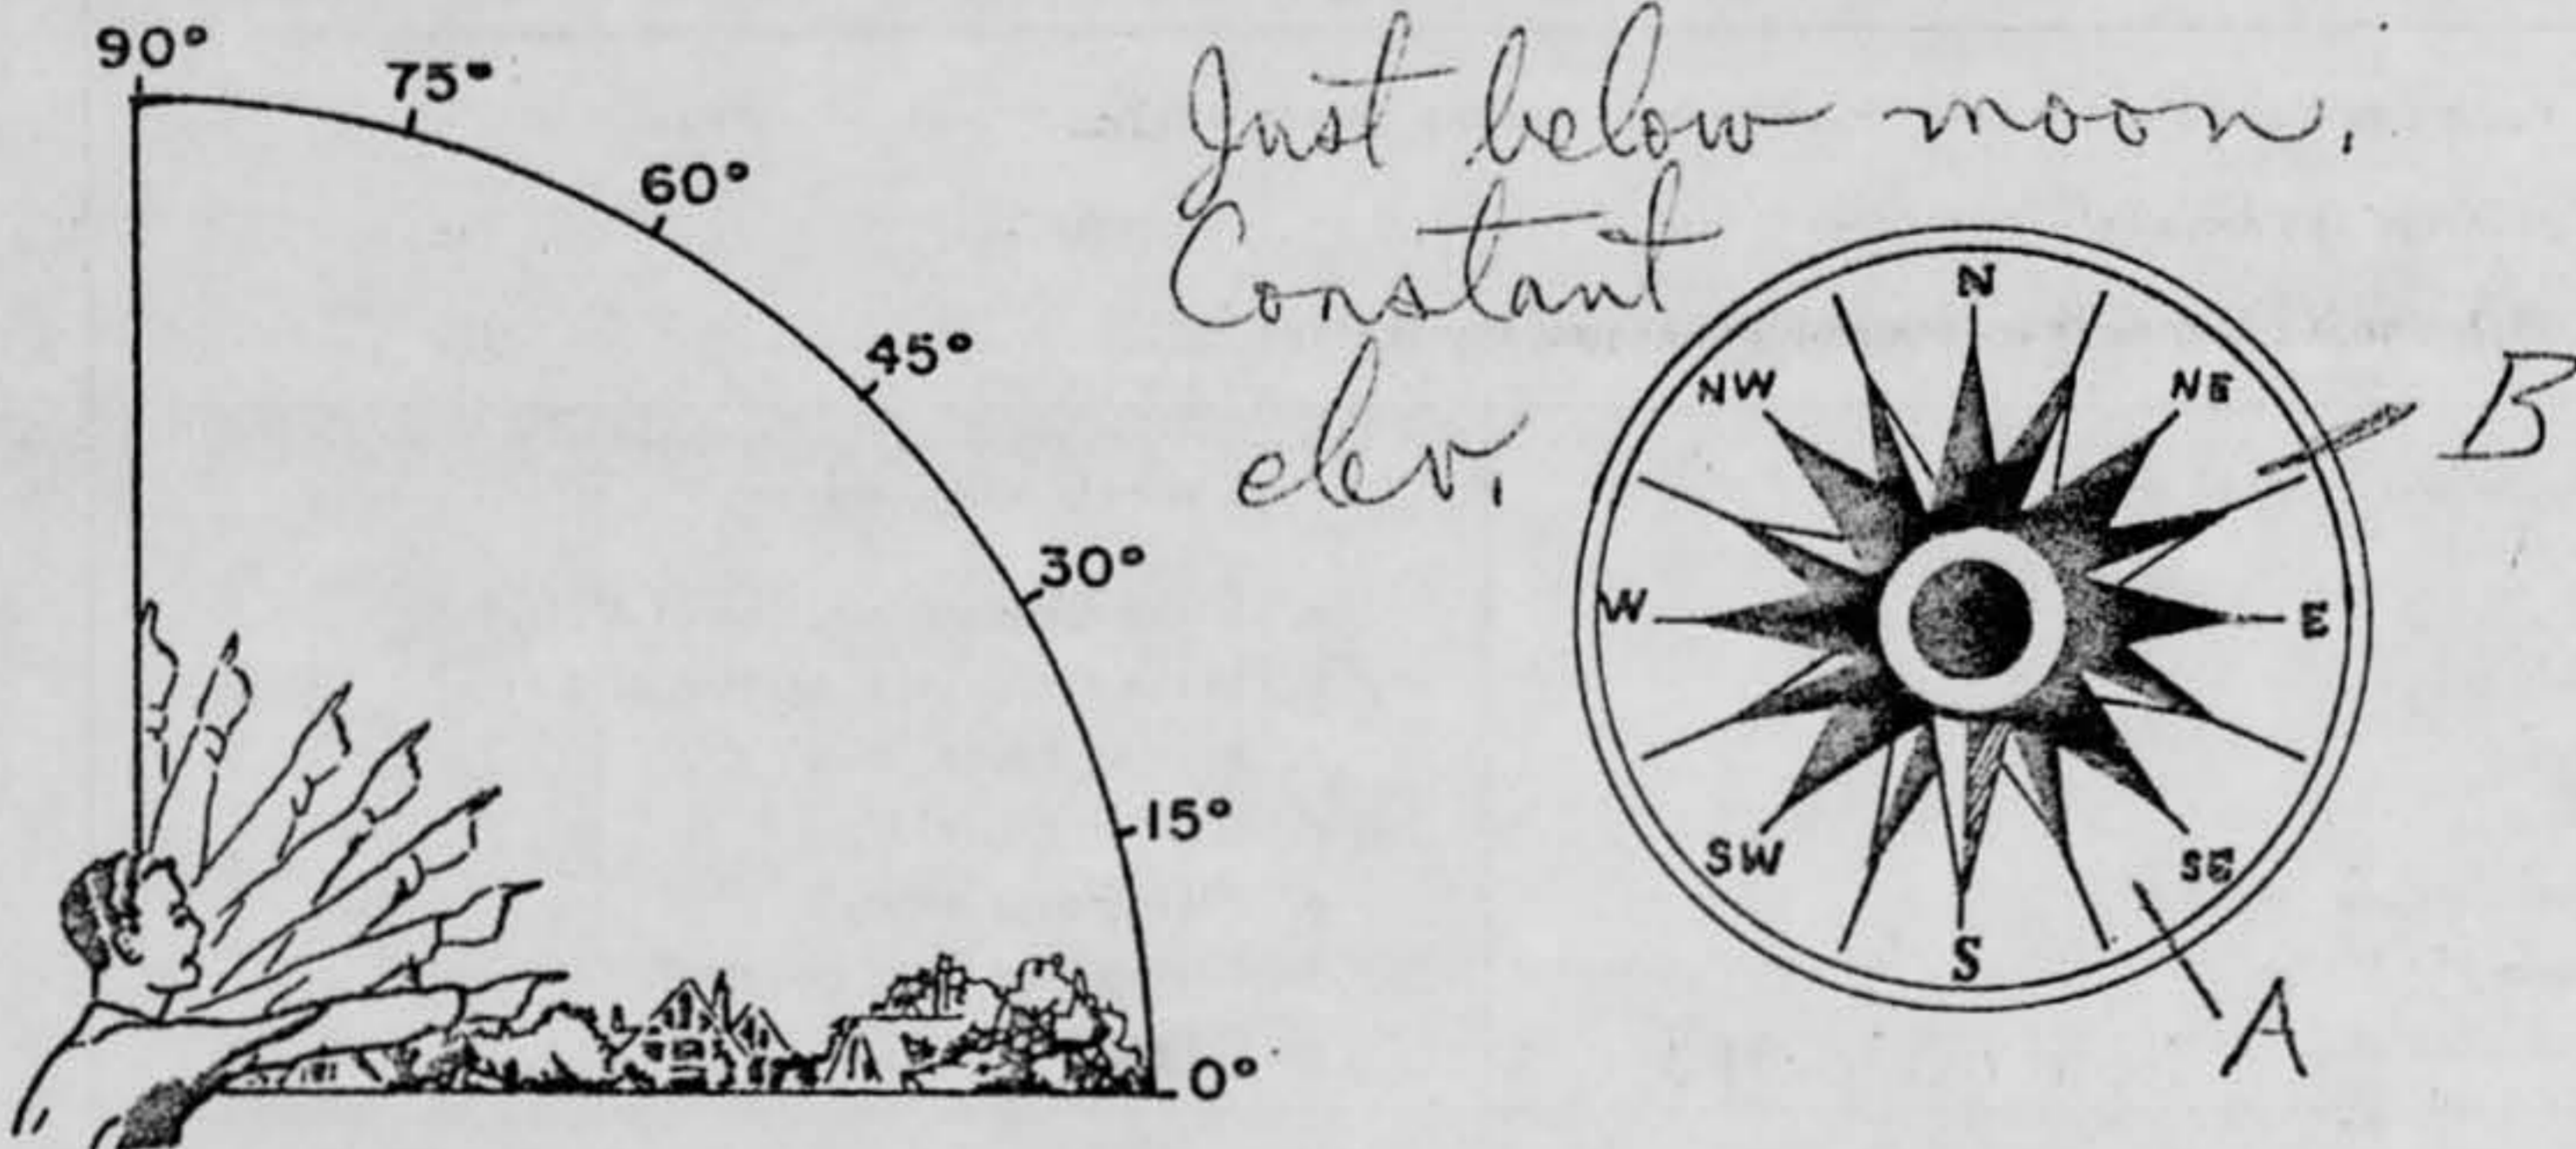 90°
75°
60°
45°
30°
15°
0°
Just below moon.
Constant
elev.
N
NW
NE
B
W
E
SW
SE
S
A